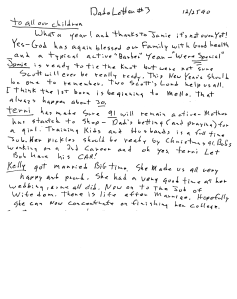 Dads Letter #3 12/25/90
To all our children
What a year! and thanks to Janie it's not over yet!
Yes-God has again blessed our Family with Good health
and a typical active "Barber" Year- "Were Special"
Jamie is ready to tie the knot but were not sure
Scott will ever be really ready. This New Years should
be one to remember. Two Scott's Lord help us all.
I think the 1st born is beginning to Mello. That
always happens about 30
terri has made sure 91 will remain active- Mother
has started to shop - Dad's betting (and praying) for
a girl. Training Kids and Husbands is a full time
Job. Her pickles should be ready by Christmas 91. Bob's
working on a 3rd Career and oh yes terri Let
Bob have his CAR!
Kelly got married Big time. She Made us all very
happy and proud. She had a very good time at her
wedding, we all did. Now on to the Job of
Wifedom. There is life after Marriage. Hopefully
she can now concentrate on finishing her college.